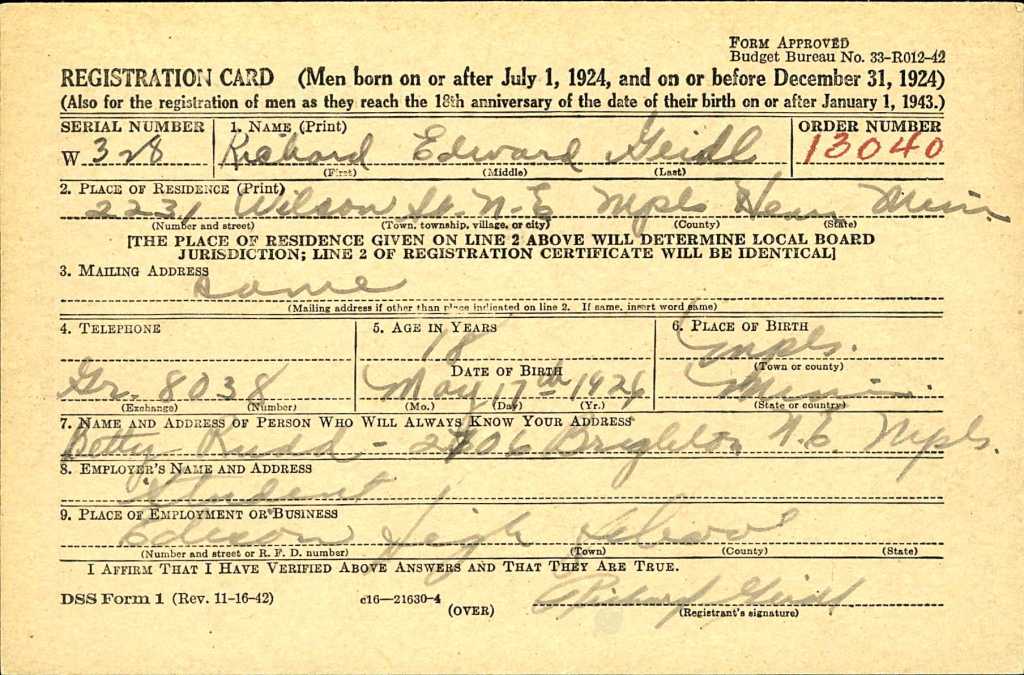 FORM APPROVED
Budget Bureau No. 33-R012-42
REGISTRATION CARD (Men born on or after July 1, 1924, and on or before December 31, 1924)
(Also for the registration of men as they reach the 18th anniversary of the date of their birth on or after January 1, 1943.)
SERIAL NUMBER 1. NAME (Print) ORDER NUMBER
W 328 Richard Edward Geidl 13040
(First) (Middle) (Last)
2. PLACE OF RESIDENCE (Print)
2231 Wilson St. N-E Mpls Henn Minn.
(Number and street) (Town, township, village, or city) (County) (State)
[THE PLACE OF RESIDENCE GIVEN ON LINE 2 ABOVE WILL DETERMINE LOCAL BOARD
JURISDICTION; LINE 2 OF REGISTRATION CERTIFICATE WILL BE IDENTICAL]
3. MAILING ADDRESS
same
(Mailing address if other than place indicated on line 2. If same, insert word same)
4. TELEPHONE 5. AGE IN YEARS 6. PLACE OF BIRTH
18 Mpls.
DATE OF BIRTH (Town or county)
Gr. 8038 May 17th 1924 Minn.
(Exchange) (Number) (Mo.) (Day) (Yr.) (State or country)
7. NAME AND ADDRESS OF PERSON WHO WILL ALWAYS KNOW YOUR ADDRESS
Betty Rudd - 2706 Brighton N.E. Mpls.
8. EMPLOYER'S NAME AND ADDRESS
Student
9. PLACE OF EMPLOYMENT OR BUSINESS
Edison High School
(Number and street or R. F. D. number) (Town) (County) (State)
I AFFIRM THAT I HAVE VERIFIED ABOVE ANSWERS AND THAT THEY ARE TRUE.
DSS Form 1 (Rev. 11-16-42) c16—21630-4 Richard Geidl
(OVER) (Registrant's signature)